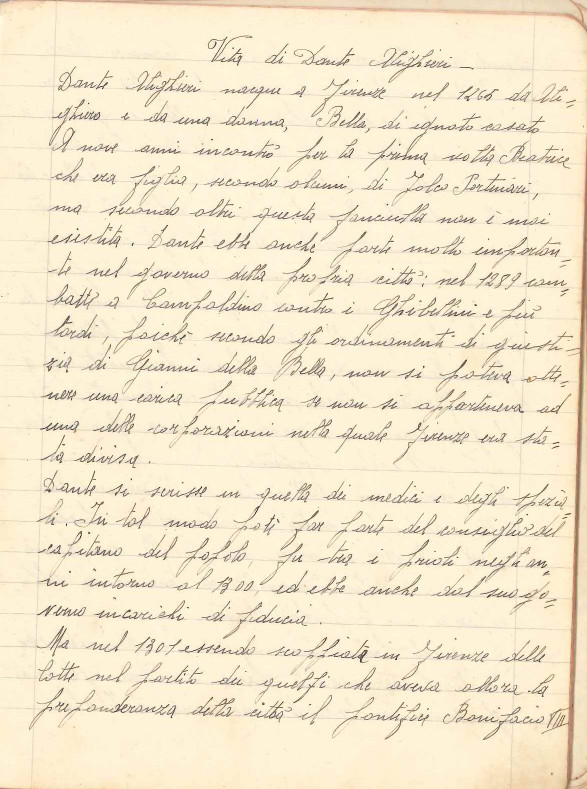 Vita di Dante Alighieri -
Dante Alighieri nacque a Firenze nel 1265 da Ali=
ghiero e da una donna, Bella, di ignoto casato
A nove anni incontrò per la prima volta Beatrice
che era figlia, secondo alcuni, di Folco Portinari,
ma secondo altri questa fanciulla non è mai
esistita. Dante ebbe anche parte molto importan=
te nel governo della propria città: nel 1289 com=
battè a Campaldino contro i Ghibellini e più
tardi, poichè secondo gli ordinamenti di giusti=
zia di Gianni della Bella, non si poteva otte=
nere una carica pubblica se non si apparteneva ad
una delle corporazioni nella quale Firenze era sta=
ta divisa.
Dante si scrisse in quella dei medici e degli spezia=
li. In tal modo potè far parte del consiglio del
capitano del popolo, fu tra i priori negli an=
ni intorno al 1300, ed ebbe anche dal suo go=
verno incarichi di fiducia.
Ma nel 1301 essendo scoppiate in Firenze delle
lotte nel partito dei guelfi che aveva allora la
preponderanza della città il pontefice Bonifacio VIII